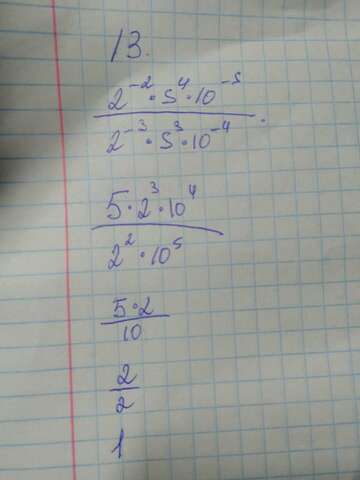 13.
2⁻²·5⁴·10⁻⁵
2⁻³·5³·10⁻⁴
5·2³·10⁴
2²·10⁵
5·2
10
2
2
1